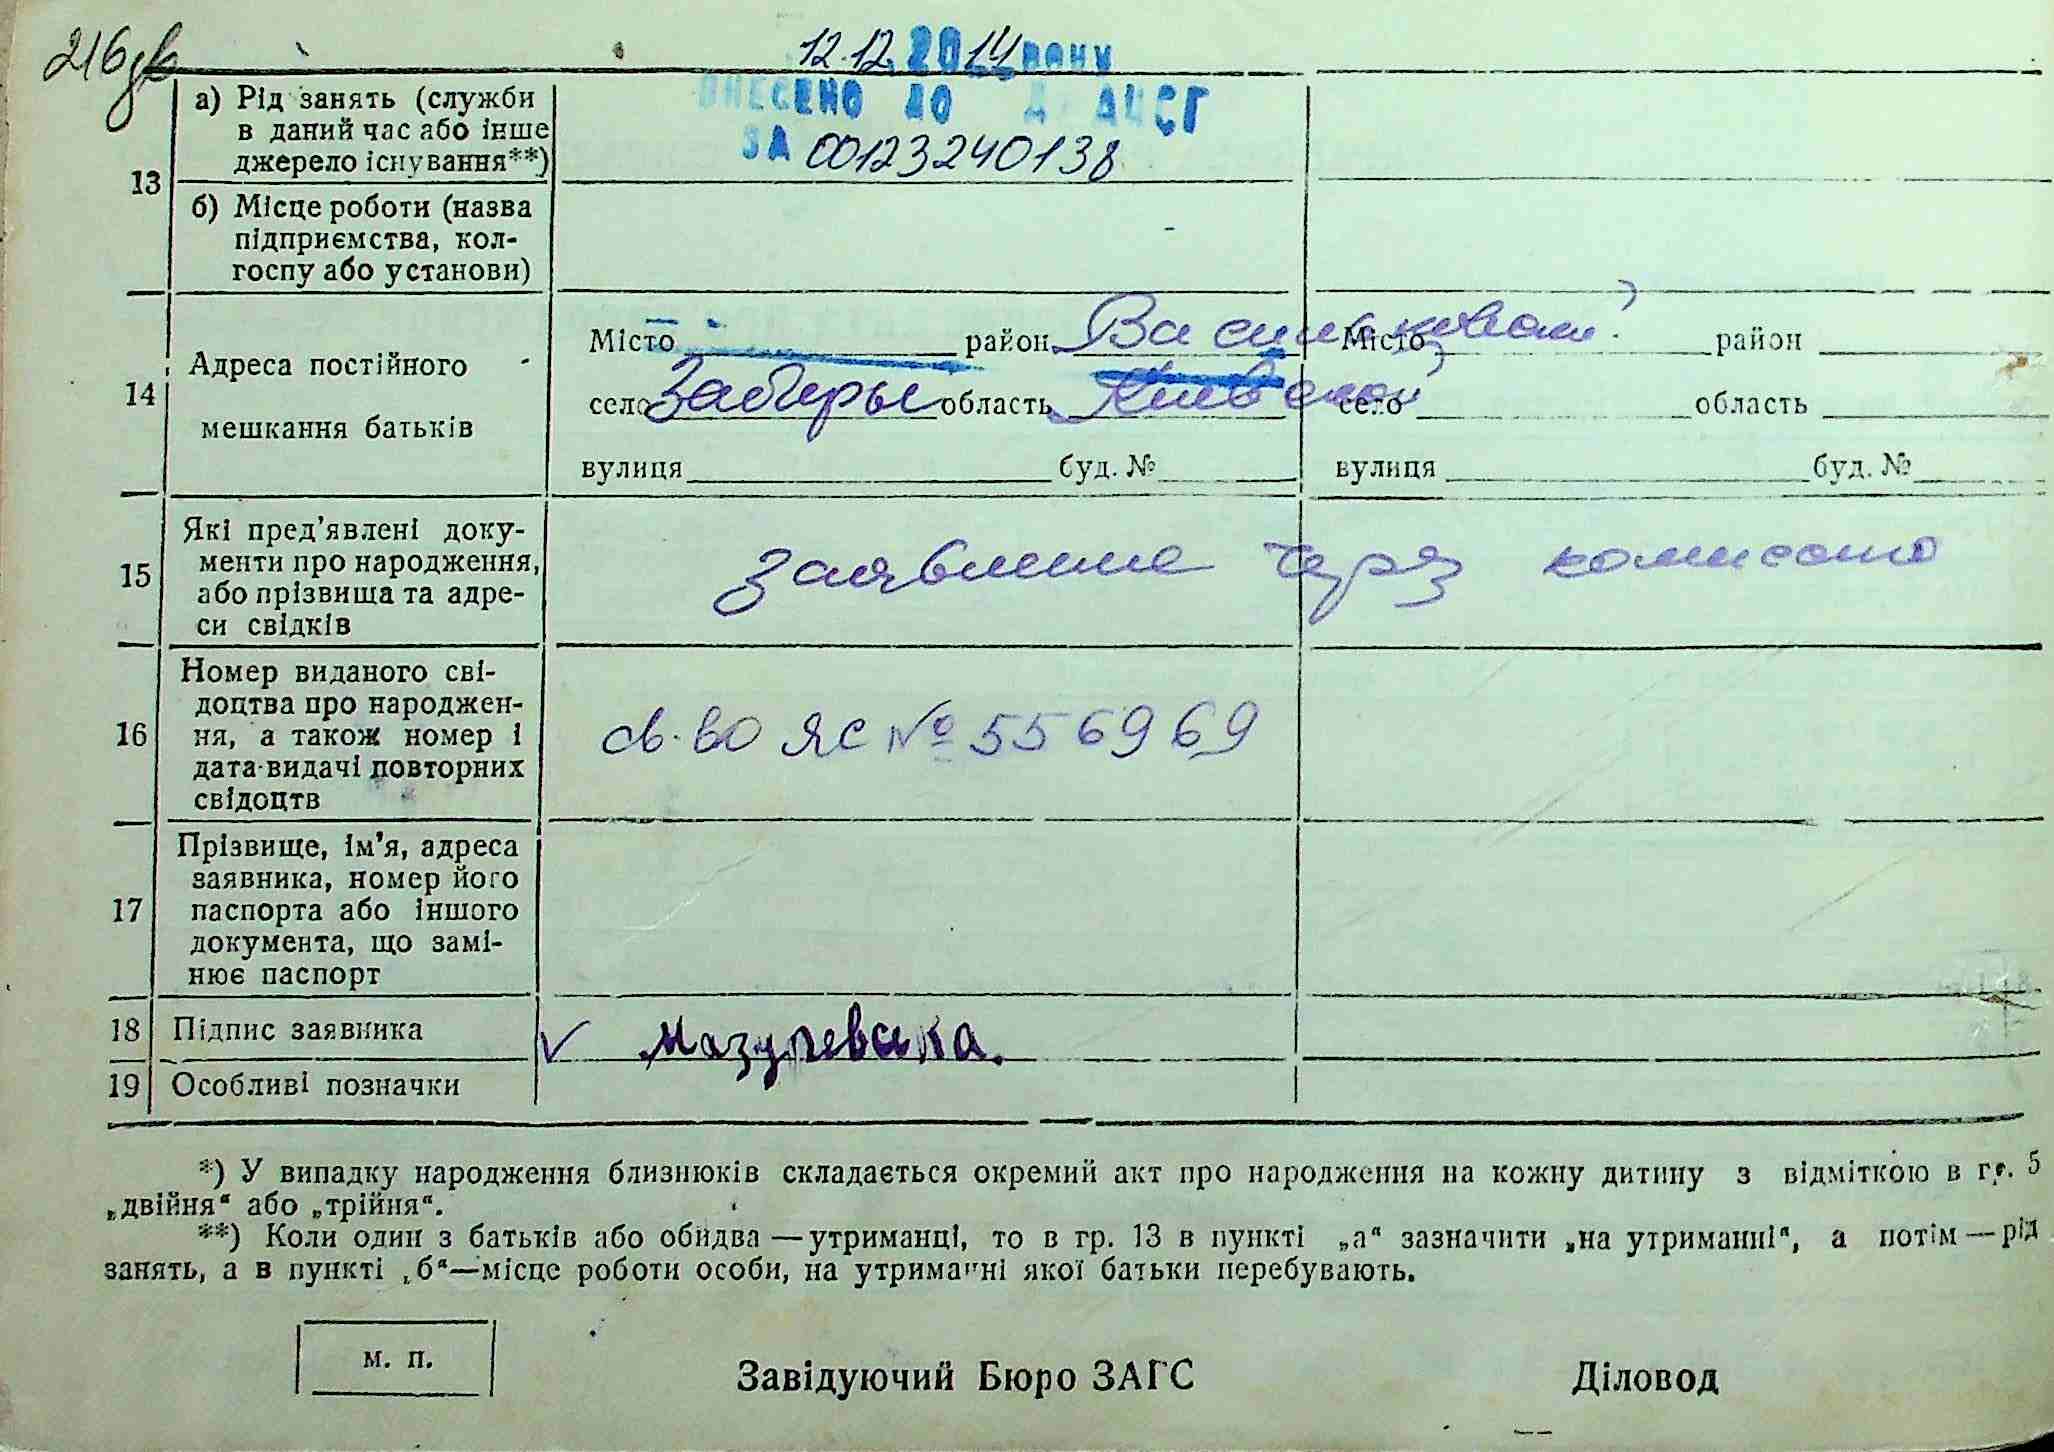 216зв
12.12.2014 року
ВНЕСЕНО ДО ДРАЦСГ
ЗА 00123240138
13
а) Рід занять (служби
в даний час або інше
джерело існування**)
б) Місце роботи (назва
підприємства, кол-
госпу або установи)
14
Адреса постійного
мешкання батьків
Місто район Васильковский
село Забирье область Киевской
вулиця буд. №
Місто район
село область
вулиця буд. №
15
Які пред'явлені доку-
менти про народження,
або прізвища та адре-
си свідків
заявление через комиссию
16
Номер виданого сві-
доцтва про народжен-
ня, а також номер і
дата видачі повторних
свідоцтв
св-во ЯС № 556969
17
Прізвище, ім'я, адреса
заявника, номер його
паспорта або іншого
документа, що замі-
нює паспорт
18 Підпис заявника
Мазуревська.
19 Особливі позначки
*) У випадку народження близнюків складається окремий акт про народження на кожну дитину з відміткою в гр. 5
„двійня“ або „трійня“.
**) Коли один з батьків або обидва — утриманці, то в гр. 13 в пункті „а“ зазначити „на утриманні“, а потім — рід
занять, а в пункті „б“—місце роботи особи, на утриманні якої батьки перебувають.
м. п.
Завідуючий Бюро ЗАГС
Діловод